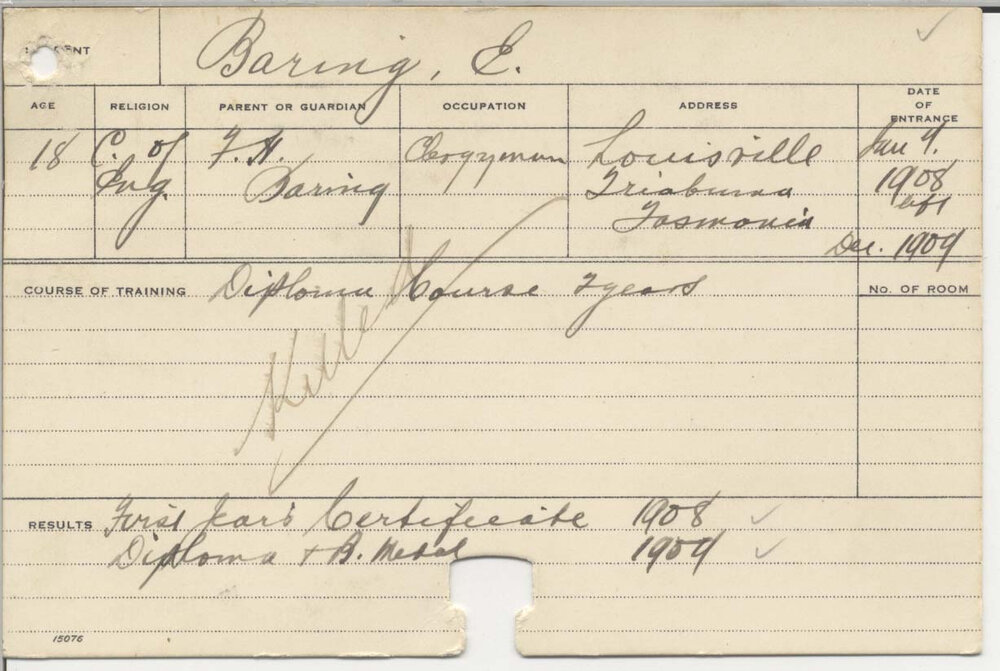 Baring, E.
AGE RELIGION PARENT OR GUARDIAN OCCUPATION ADDRESS DATE OF ENTRANCE
18 C. of F. H. Clergyman Louisville Jan 9.
Eng. Baring Triabunna 1908
Tasmania left
Dec. 1909
COURSE OF TRAINING Diploma Course 2 years No. OF ROOM
Killed
RESULTS First Year's Certificate 1908 ✓
Diploma + B. Medal 1909 ✓
15076